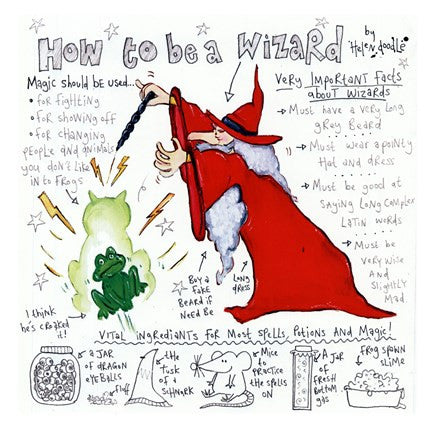 How to be a Wizard
by Helen doodle
Magic should be used...
• for fighting
• for showing off
• for changing
people and animals
you don't like
in to frogs
Very Important facts
about Wizards
→ Must have a very long
grey Beard
→ Must wear a pointy
Hat and dress
→ Must be good at
Saying Long complex
Latin words
→ Must be
very wise
AND
slightly
Mad
Buy a
fake
Beard if
Need Be
Long
dress
I think
he's croaked
it!
Vital ingredients for Most spells, Potions and Magic!
a JAR
of dragon
eyeballs
fluff
the
tusk
of a
Schnork
Mice
to
practice
the spells
on
A Jar
of
fresh
Bottom
gas
frog spawn
slime